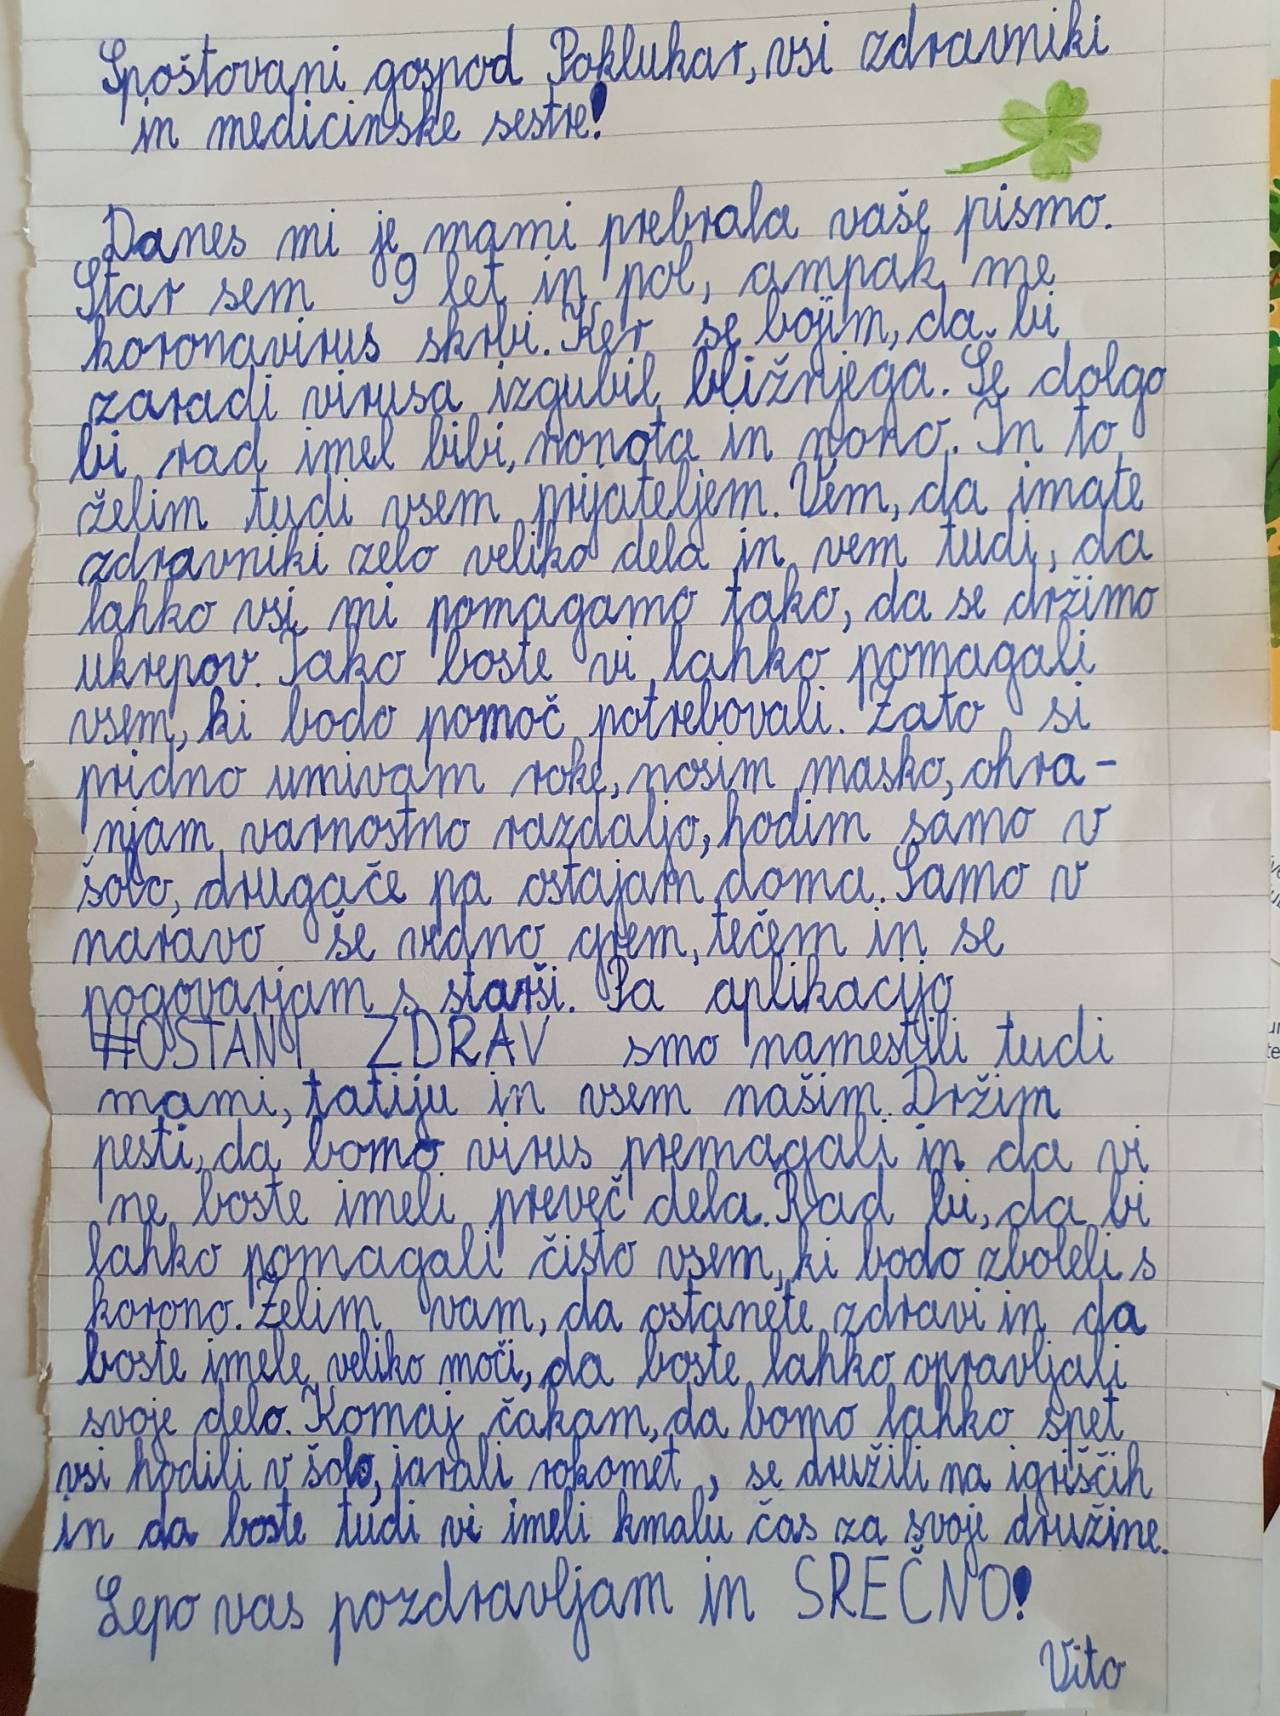 Spoštovani gospod Poklukar, vsi zdravniki
in medicinske sestre!
Danes mi je mami prebrala vaše pismo.
Star sem 9 let in pol, ampak me
koronavirus skrbi. Ker se bojim, da bi
zaradi virusa izgubil bližnjega. Še dolgo
bi rad imel bibi, nonota in nono. In to
želim tudi vsem prijateljem. Vem, da imate
zdravniki zelo veliko dela in vem tudi, da
lahko vsi mi pomagamo tako, da se držimo
ukrepov. Tako boste vi lahko pomagali
vsem, ki bodo pomoč potrebovali. Zato si
pridno umivam roke, nosim masko, ohra-
njam varnostno razdaljo, hodim samo v
šolo, drugače pa ostajam doma. Samo v
naravo še vedno grem, tečem in se
pogovarjam s starši. Pa aplikacijo
#OSTANI ZDRAV smo namestili tudi
mami, tatiju in vsem našim. Držim
pesti, da bomo virus premagali in da vi
ne boste imeli preveč dela. Rad bi, da bi
lahko pomagali čisto vsem, ki bodo zboleli s
korono. Želim vam, da ostanete zdravi in da
boste imele veliko moči, da boste lahko opravljali
svoje delo. Komaj čakam, da bomo lahko spet
vsi hodili v šolo, igrali rokomet, se družili na igriščih
in da boste tudi vi imeli kmalu čas za svoje družine.
Lepo vas pozdravljam in SREČNO!
Vito